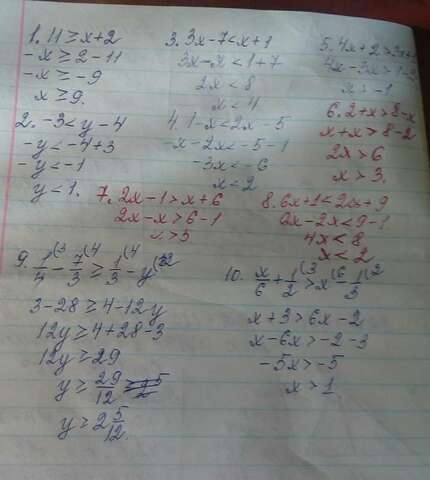 1. 11 ≥ x + 2
-x ≥ 2 - 11
-x ≥ -9
x ≥ 9.
2. -3 < y - 4
-y < -4 + 3
-y < -1
y < 1.
3. 3x - 7 < x + 1
3x - x < 1 + 7
2x < 8
x < 4
4. 1 - x < 2x - 5
-x - 2x < -5 - 1
-3x < -6
x < 2
5. 4x + 2 > 3x + 1
4x - 3x > 1 - 2
x > -1
6. 2 + x > 8 - x
x + x > 8 - 2
2x > 6
x > 3.
7. 2x - 1 > x + 6
2x - x > 6 - 1
x > 5
8. 6x + 1 < 2x + 9
6x - 2x < 9 - 1
4x < 8
x < 2
9. 1/4 (3 - 7/3 (4 ≥ 1/3 (4 - y (12
3 - 28 ≥ 4 - 12y
12y ≥ 4 + 28 - 3
12y ≥ 29
y ≥ 29/12
y ≥ 2 5/12.
10. x/6 + 1/2 (3 > x (6 - 1/3 (2
x + 3 > 6x - 2
x - 6x > -2 - 3
-5x > -5
x > 1.